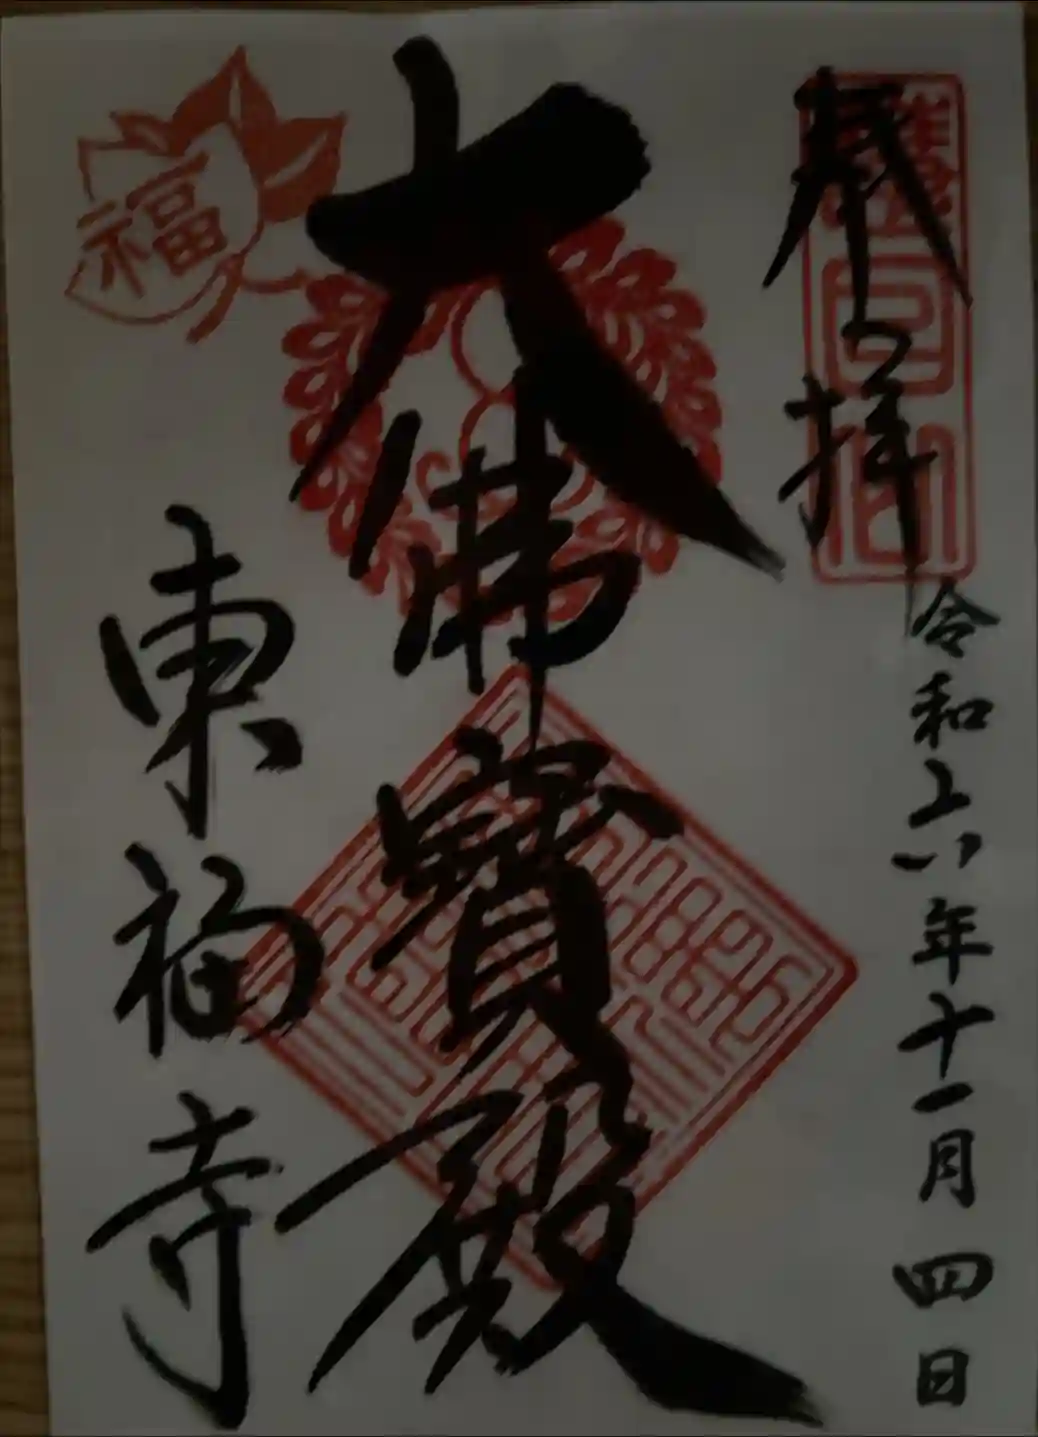 奉拝
令和六年十一月四日
大佛寶殿
東福寺
福